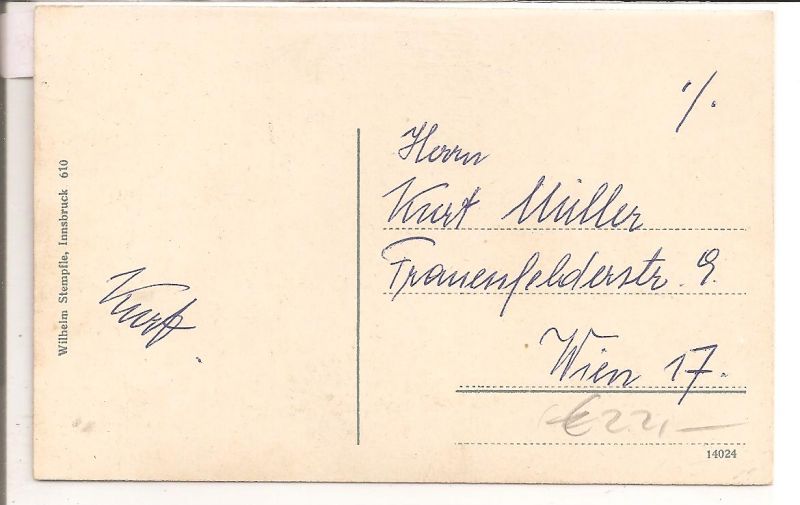 Wilhelm Stempfle, Innsbruck 610
Kurt.
·/.
Herrn
Kurt Müller
Frauenfelderstr. 9.
Wien 17.
€ 22,—
14024